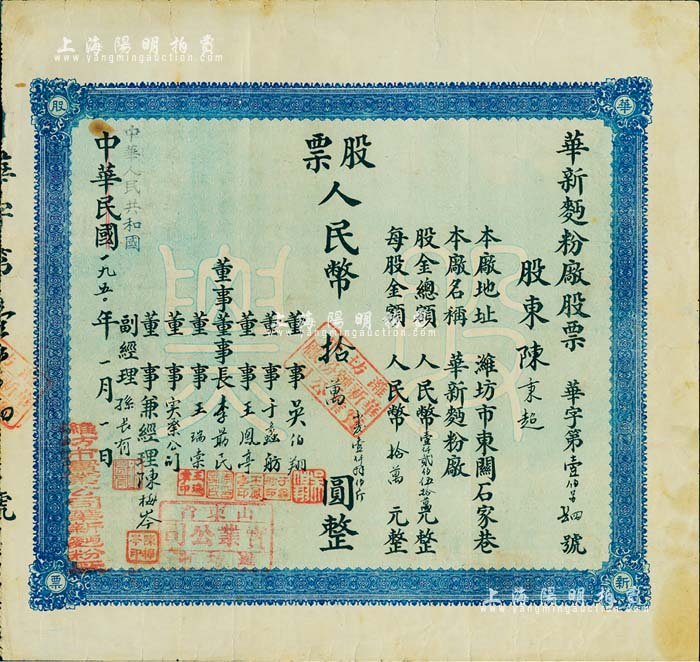 上海陽明拍賣
www.yangmingauction.com
華
新
股
票
華新麵粉廠股票 華字第壹佰
號
股東 陳東超
本廠地址 濰坊市東關石家巷
本廠名稱 華新麵粉廠
股金總額 人民幣壹仟貳佰伍拾萬元整
每股金額 人民幣 拾萬 元整
股票
人民幣 拾萬 圓整
董事 吳伯翔
董事 于
舫
董事 王鳳亭
董事長 李
民
董事 王瑞
董事 实業公司
董事兼經理 陳梅岑
副經理 孫长有
中華人民共和國
中華民國一九五〇年一月一日
山東省
實業公司
上海陽明拍賣
www.yangmingauction.com
上海陽明拍賣
www.yangmingauction.com
華字第壹
號